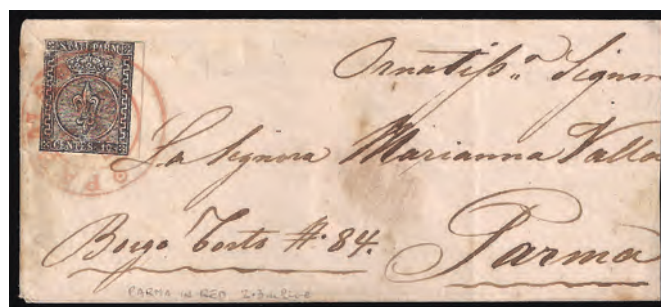 STATI PARM.
CENTES. 10
PARMA
Ornatiss.ª Signora
La Signora Marianna Valla
Borgo Torto #. 84.
Parma
PARMA IN RED